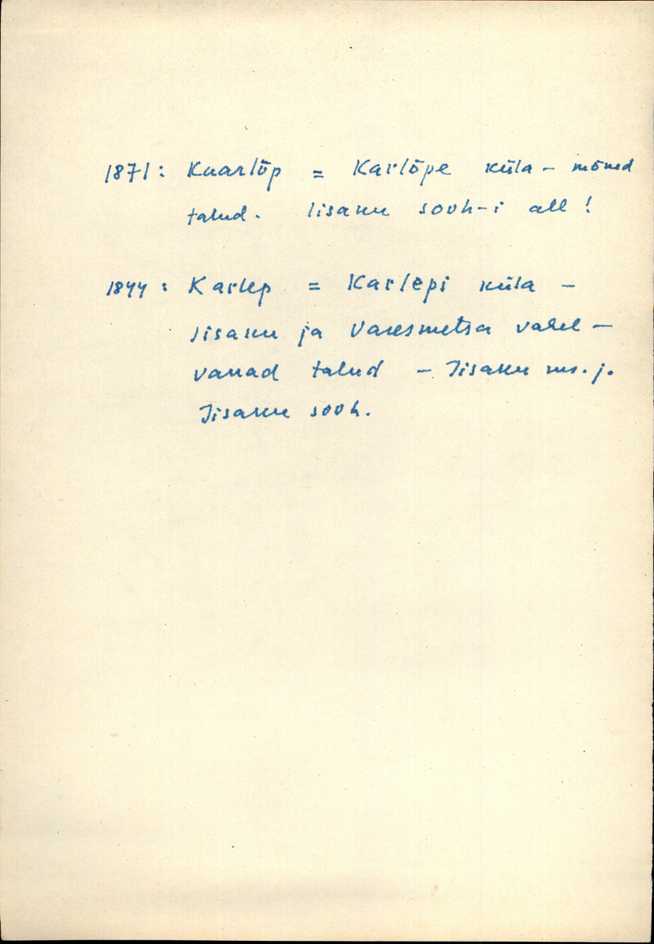 1871: Kaarlõp = Karlõpe küla – mõned
talud. Iisaku sovh-i all!
1844: Karlep = Karlepi küla –
Iisaku ja Varesmetsa vahel –
vanad talud – Iisaku ms. j.
Iisaku sovh.